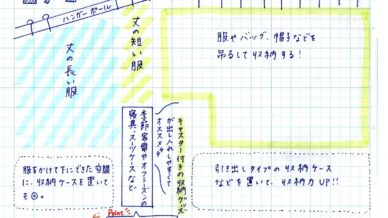 ハンガーポール
丈の長い服
丈の短い服
服やバッグ、帽子などを
吊るして収納する!
キャスター付きの収納グッズ
が出し入れしやすくて
オススメ♪
季節家電やオフシーズンの
寝具、スーツケースなど
服をかけて下にできた空間
に、収納ケースを置いて
も◎。
引き出しタイプの収納ケース
などを置いて、収納力UP!!
Point